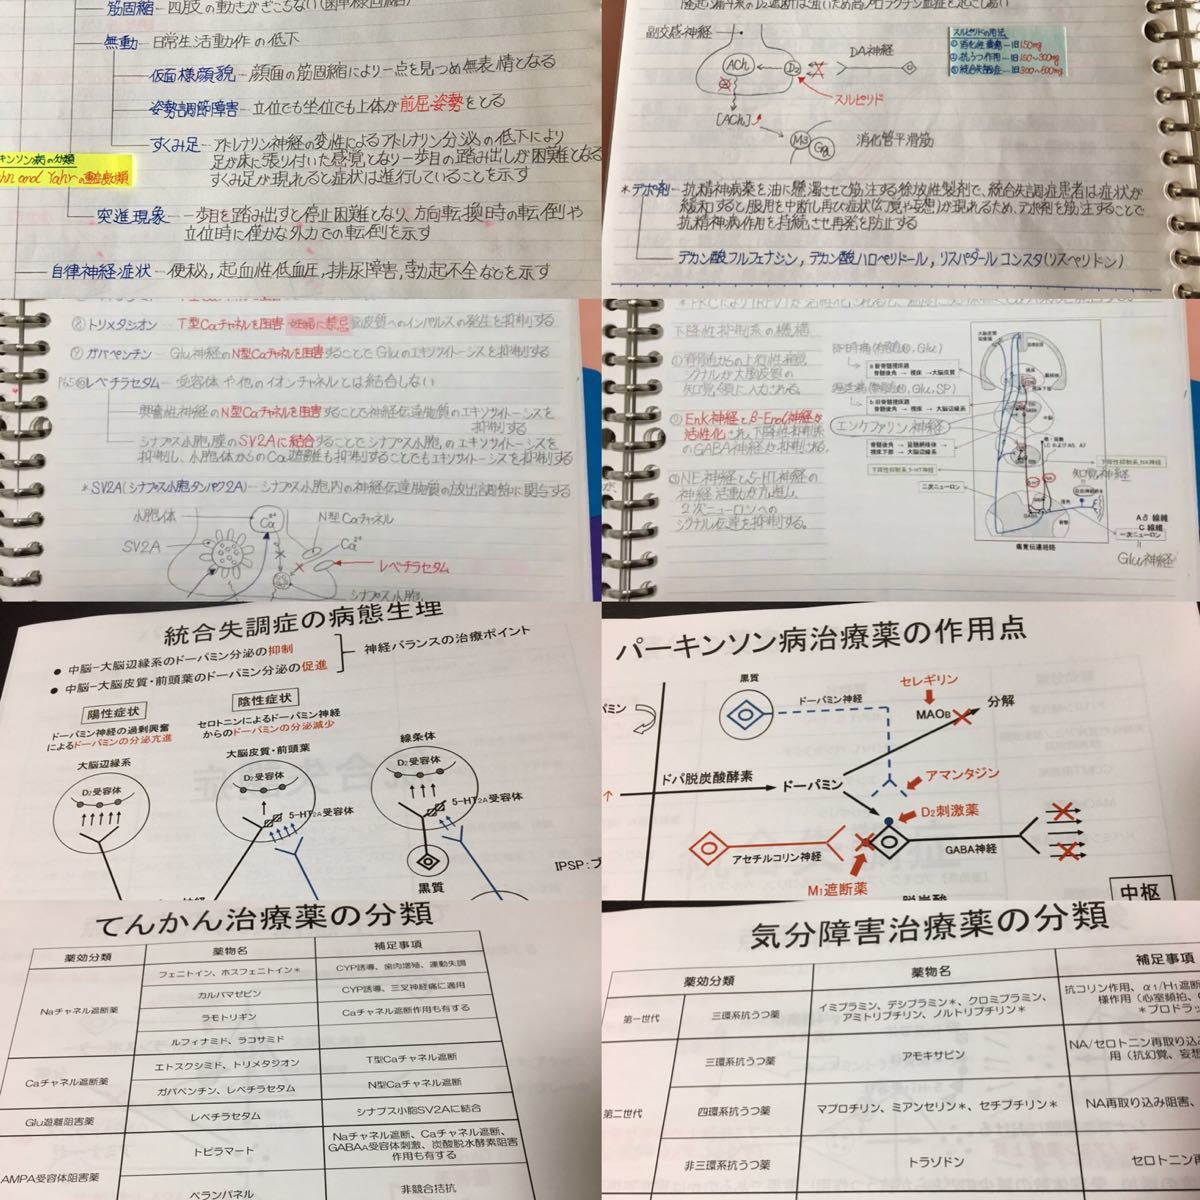 筋固縮 - 四肢の動きがぎこちない(歯車様固縮)
無動 - 日常生活動作の低下
仮面様顔貌 - 顔面の筋固縮により一点を見つめ無表情となる
姿勢調節障害 - 立位でも坐位でも上体が前屈姿勢をとる
すくみ足 - アドレナリン神経の変性によるアドレナリン分泌の低下により
足が床に張り付いた感覚となり一歩目の踏み出しが困難となる
すくみ足が現れると症状は進行していることを示す
キンソン病の分類
ehn and Yahrの重症度分類
突進現象 - 一歩目を踏み出すと停止困難となり、方向転換時の転倒や
立位時に僅かな外力での転倒を示す
自律神経症状 - 便秘, 起立性低血圧, 排尿障害, 勃起不全などを示す
副交感神経
ACh
D2
DA神経
スルピリド
[ACh]
M3
Gq
消化管平滑筋
スルピリドの用法
①消化性潰瘍-1日150mg
②抗うつ作用-1日150~300mg
③統合失調症-1日300~600mg
*デポ剤 - 抗精神病薬を油に懸濁させて筋注する徐放性製剤で、統合失調症患者は症状が
緩和すると服用を中断し再び症状(幻覚や妄想)が現れるため、デポ剤を筋注することで
抗精神病作用を持続させ再発を防止する
デカン酸フルフェナジン, デカン酸ハロペリドール, リスパダールコンスタ(リスペリドン)
⑧トリメタジオン - T型Caチャネルを阻害 妊婦に禁忌 脳皮質へのインパルスの発生を抑制する
⑨ガバペンチン - Glu神経のN型Caチャネルを阻害することでGluのエキソサイトーシスを抑制する
P65⑩レベチラセタム - 受容体や他のイオンチャネルとは結合しない
興奮性神経のN型Caチャネルを阻害することで神経伝達物質のエキソサイトーシスを
抑制する
シナプス小胞膜のSV2Aに結合することでシナプス小胞のエキソサイトーシスを
抑制し、小胞体からのCa遊離も抑制することでもエキソサイトーシスを抑制する
*SV2A(シナプス小胞タンパク2A) - シナプス小胞内の神経伝達物質の放出調節に関与する
小胞体
Ca²⁺
N型Caチャネル
SV2A
Ca²⁺
レベチラセタム
シナプス小胞
下降性抑制系の機構
①脊髄からの上行性痛覚
シグナルが大脳皮質の
知覚領に入力される。
②Enk神経とβ-End神経が
活性化され、下降性抑制系
のGABA神経が抑制する。
③NE神経と5-HT神経の
神経活動が亢進し、
2次ニューロンへの
シグナル伝達を抑制する。
エンケファリン神経
下降性抑制系NA神経
下降性抑制系5-HT神経
二次ニューロン
知覚神経
Aδ線維
C線維
一次ニューロン
Glu神経
痛覚伝達経路
統合失調症の病態生理
● 中脳-大脳辺縁系のドーパミン分泌の抑制
● 中脳-大脳皮質・前頭葉のドーパミン分泌の促進
神経バランスの治療ポイント
陽性症状
ドーパミン神経の過剰興奮
によるドーパミンの分泌亢進
大脳辺縁系
D₂受容体
陰性症状
セロトニンによるドーパミン神経
からのドーパミンの分泌減少
大脳皮質・前頭葉
D₂受容体
5-HT₂A受容体
線条体
D₂受容体
5-HT₂A受容体
黒質
IPSP:
パーキンソン病治療薬の作用点
黒質
ドーパミン神経
セレギリン
MAOB
分解
ドパ脱炭酸酵素
ドーパミン
アマンタジン
D₂刺激薬
アセチルコリン神経
GABA神経
M₁遮断薬
脱炭酸
中枢
てんかん治療薬の分類
薬効分類 薬物名 補足事項
Naチャネル遮断薬
フェニトイン、ホスフェニトイン* CYP誘導、歯肉増殖、運動失調
カルバマゼピン CYP誘導、三叉神経痛に適用
ラモトリギン Caチャネル遮断作用も有する
ルフィナミド、ラコサミド
Caチャネル遮断薬
エトスクシミド、トリメタジオン T型Caチャネル遮断
ガバペンチン、レベチラセタム N型Caチャネル遮断
Glu遊離阻害薬 レベチラセタム シナプス小胞SV2Aに結合
AMPA受容体阻害薬
トピラマート
Naチャネル遮断、Caチャネル遮断、
GABAA受容体刺激、炭酸脱水酵素阻害
作用も有する
ペランパネル 非競合拮抗
気分障害治療薬の分類
薬効分類 薬物名 補足事項
第一世代 三環系抗うつ薬
イミプラミン、デシプラミン*、クロミプラミン、
アミトリプチリン、ノルトリプチリン*
抗コリン作用、α₁/H₁遮断
様作用(心室頻拍、
*プロドラッ
第二世代
三環系抗うつ薬 アモキサピン
NA/セロトニン再取り込み
用(抗幻覚、妄想
四環系抗うつ薬 マプロチリン、ミアンセリン*、セチプチリン* NA再取り込み阻害、
非三環系抗うつ薬 トラゾドン セロトニン再